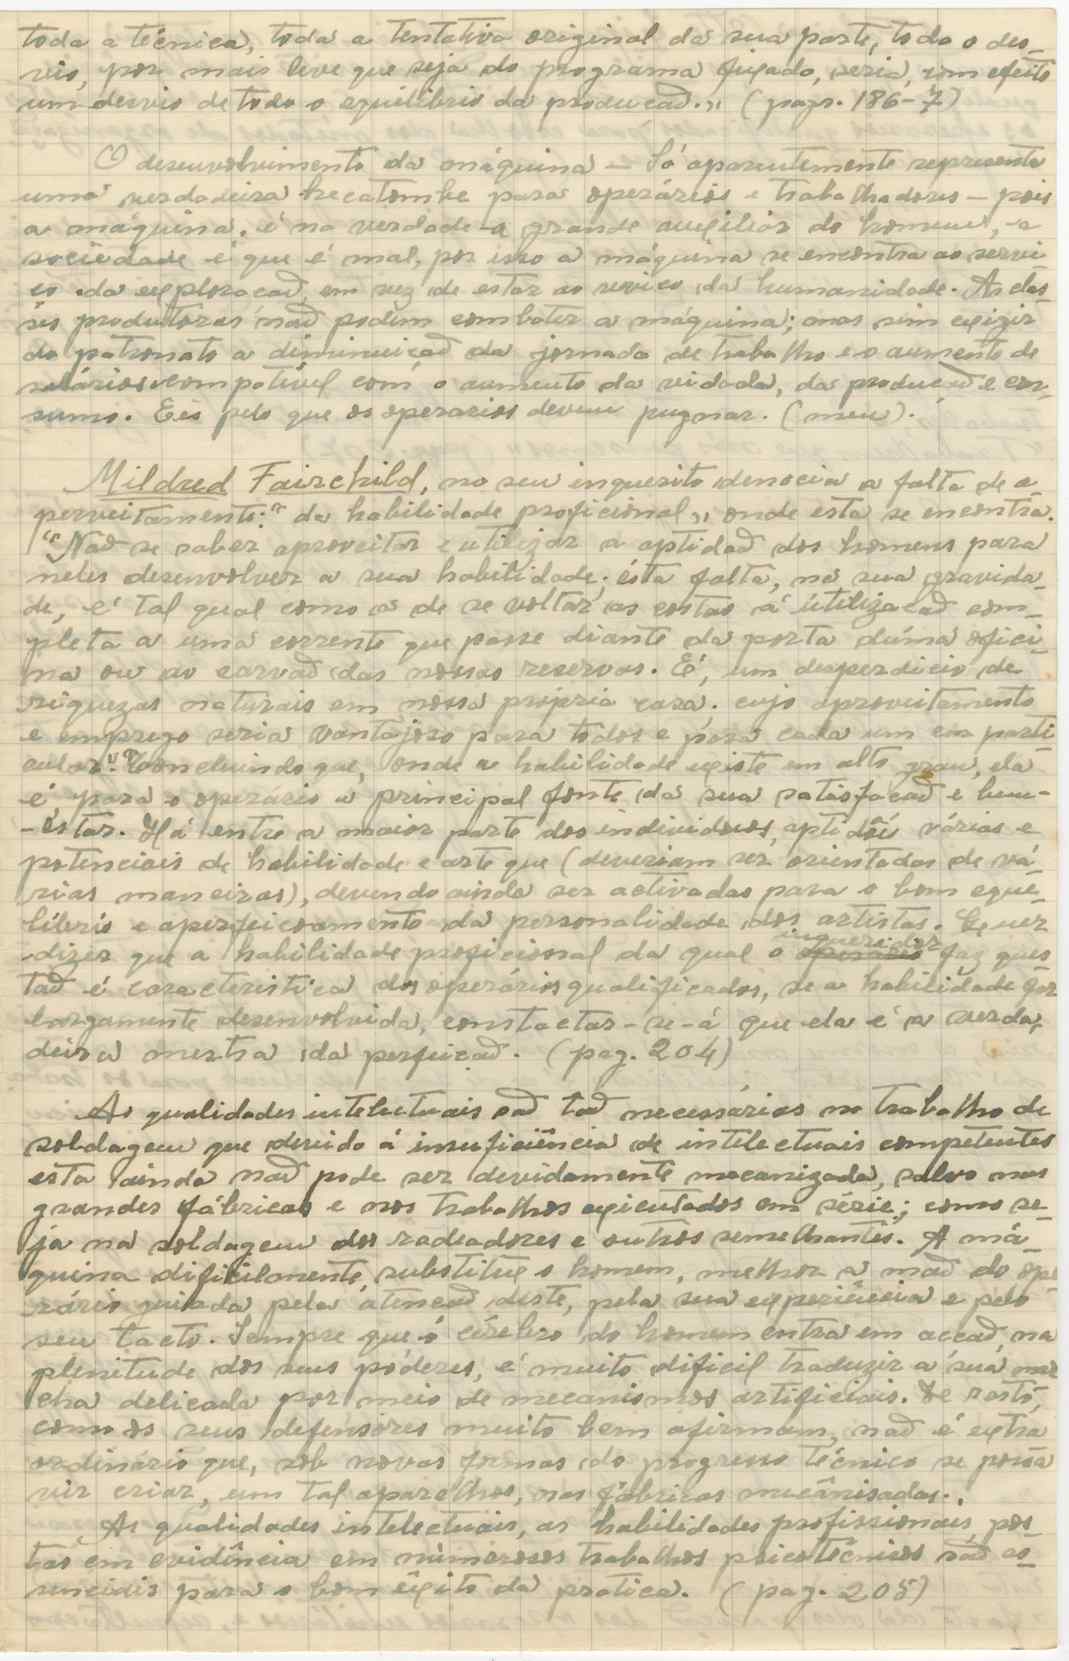 toda a técnica, toda a tentativa original da sua parte, todo o des-
vio, por mais leve que seja do programa fixado, seria, com efeito
um desvio de todo o equilibrio da produção.„ (pags. 186-7)
O desenvolvimento da máquina – Só aparentemente representa
uma verdadeira hecatombe para operários e trabalhadores – pois
a máquina, é na verdade a grande auxiliar do homem, a
sociedade é que é mal, por isso a máquina se encontra ao servi-
ço da exploração, em vez de estar ao serviço da humanidade. As clas-
ses produtoras não podem combater a máquina; mas sim exigir
do patronato a diminuição da jornada de trabalho e o aumento de
salários compativel com o aumento da vida, da produção e con-
sumo. Eis pelo que os operarios devem pugnar. (meu).
Mildred Fairchild, no seu inquerito denocia a falta de a-
perveitamento: "da habilidade proficional„, onde esta se encontra.
"Não se saber aproveitar e utilizar a aptidão dos homens para
neles desenvolver a sua habilidade; ésta falta, na sua gravida-
de, é tal qual como a de se voltar as costas á utilização com-
pleta a uma corrente que passe diante da porta dúma ofici-
na ou ao carvão das nossas reservas. É, um desperdicio de
riquezas naturais em nossa própria casa. cujo aproveitamento
e emprego seria vantajoso para todos e para cada um em parti
cular". Concluindo que, onde a habilidade existe em alto grau, ela
é, para o operário a principal fonte da sua satisfação e bem-
-estar. Há entre a maior parte dos individuos, aptidõis várias e
potenciais de habilidade e arte que (deveriam ser orientadas de vá-
rias maneiras), devendo ainda ser activadas para o bom equi-
líbrio e aperfeiçoamento da personalidade dos artistas. Quer
dizer que a habilidade proficional da qual o inqueridor faz ques
tão é caracteristica dos operários qualificados, se a habilidade for
largamente desenvolvida, constactar-se-á que ela é a verda-
deira mestra da perfeição. (pag. 204)
As qualidades intelectuais são tão necessárias no trabalho de
soldagem que devido á insuficiência de intelectuais competentes
esta ainda não pode ser devidamente mecanizada, salvo nas
grandes fábricas e nos trabalhos exicutados em série; como se-
ja na soldagem dos radeadores e outros semelhantes. A má-
quina dificilmente, substitue o homem, melhor a mão do ope
rário guiada pela atenção deste, pela sua experiência e pelo
seu tacto. Sempre que o cérebro do homem entra em acção, na
plenitude dos seus póderes, é muito dificil traduzir a sua mar
cha delicada por meio de mecanismos artificiais. De resto,
como os seus defensores muito bem afirmam, não é extra
ordinário que, sob novas formas do progresso técnico se possa
vir criar, um tal aparelhos, nas fábricas mecânisadas.
As qualidades intelectuais, as habilidades profissionais, pos-
tas em evidência em númerosos trabalhos psicotécnicos são es-
senciais para o bom êxito da pratica. (pag. 205)